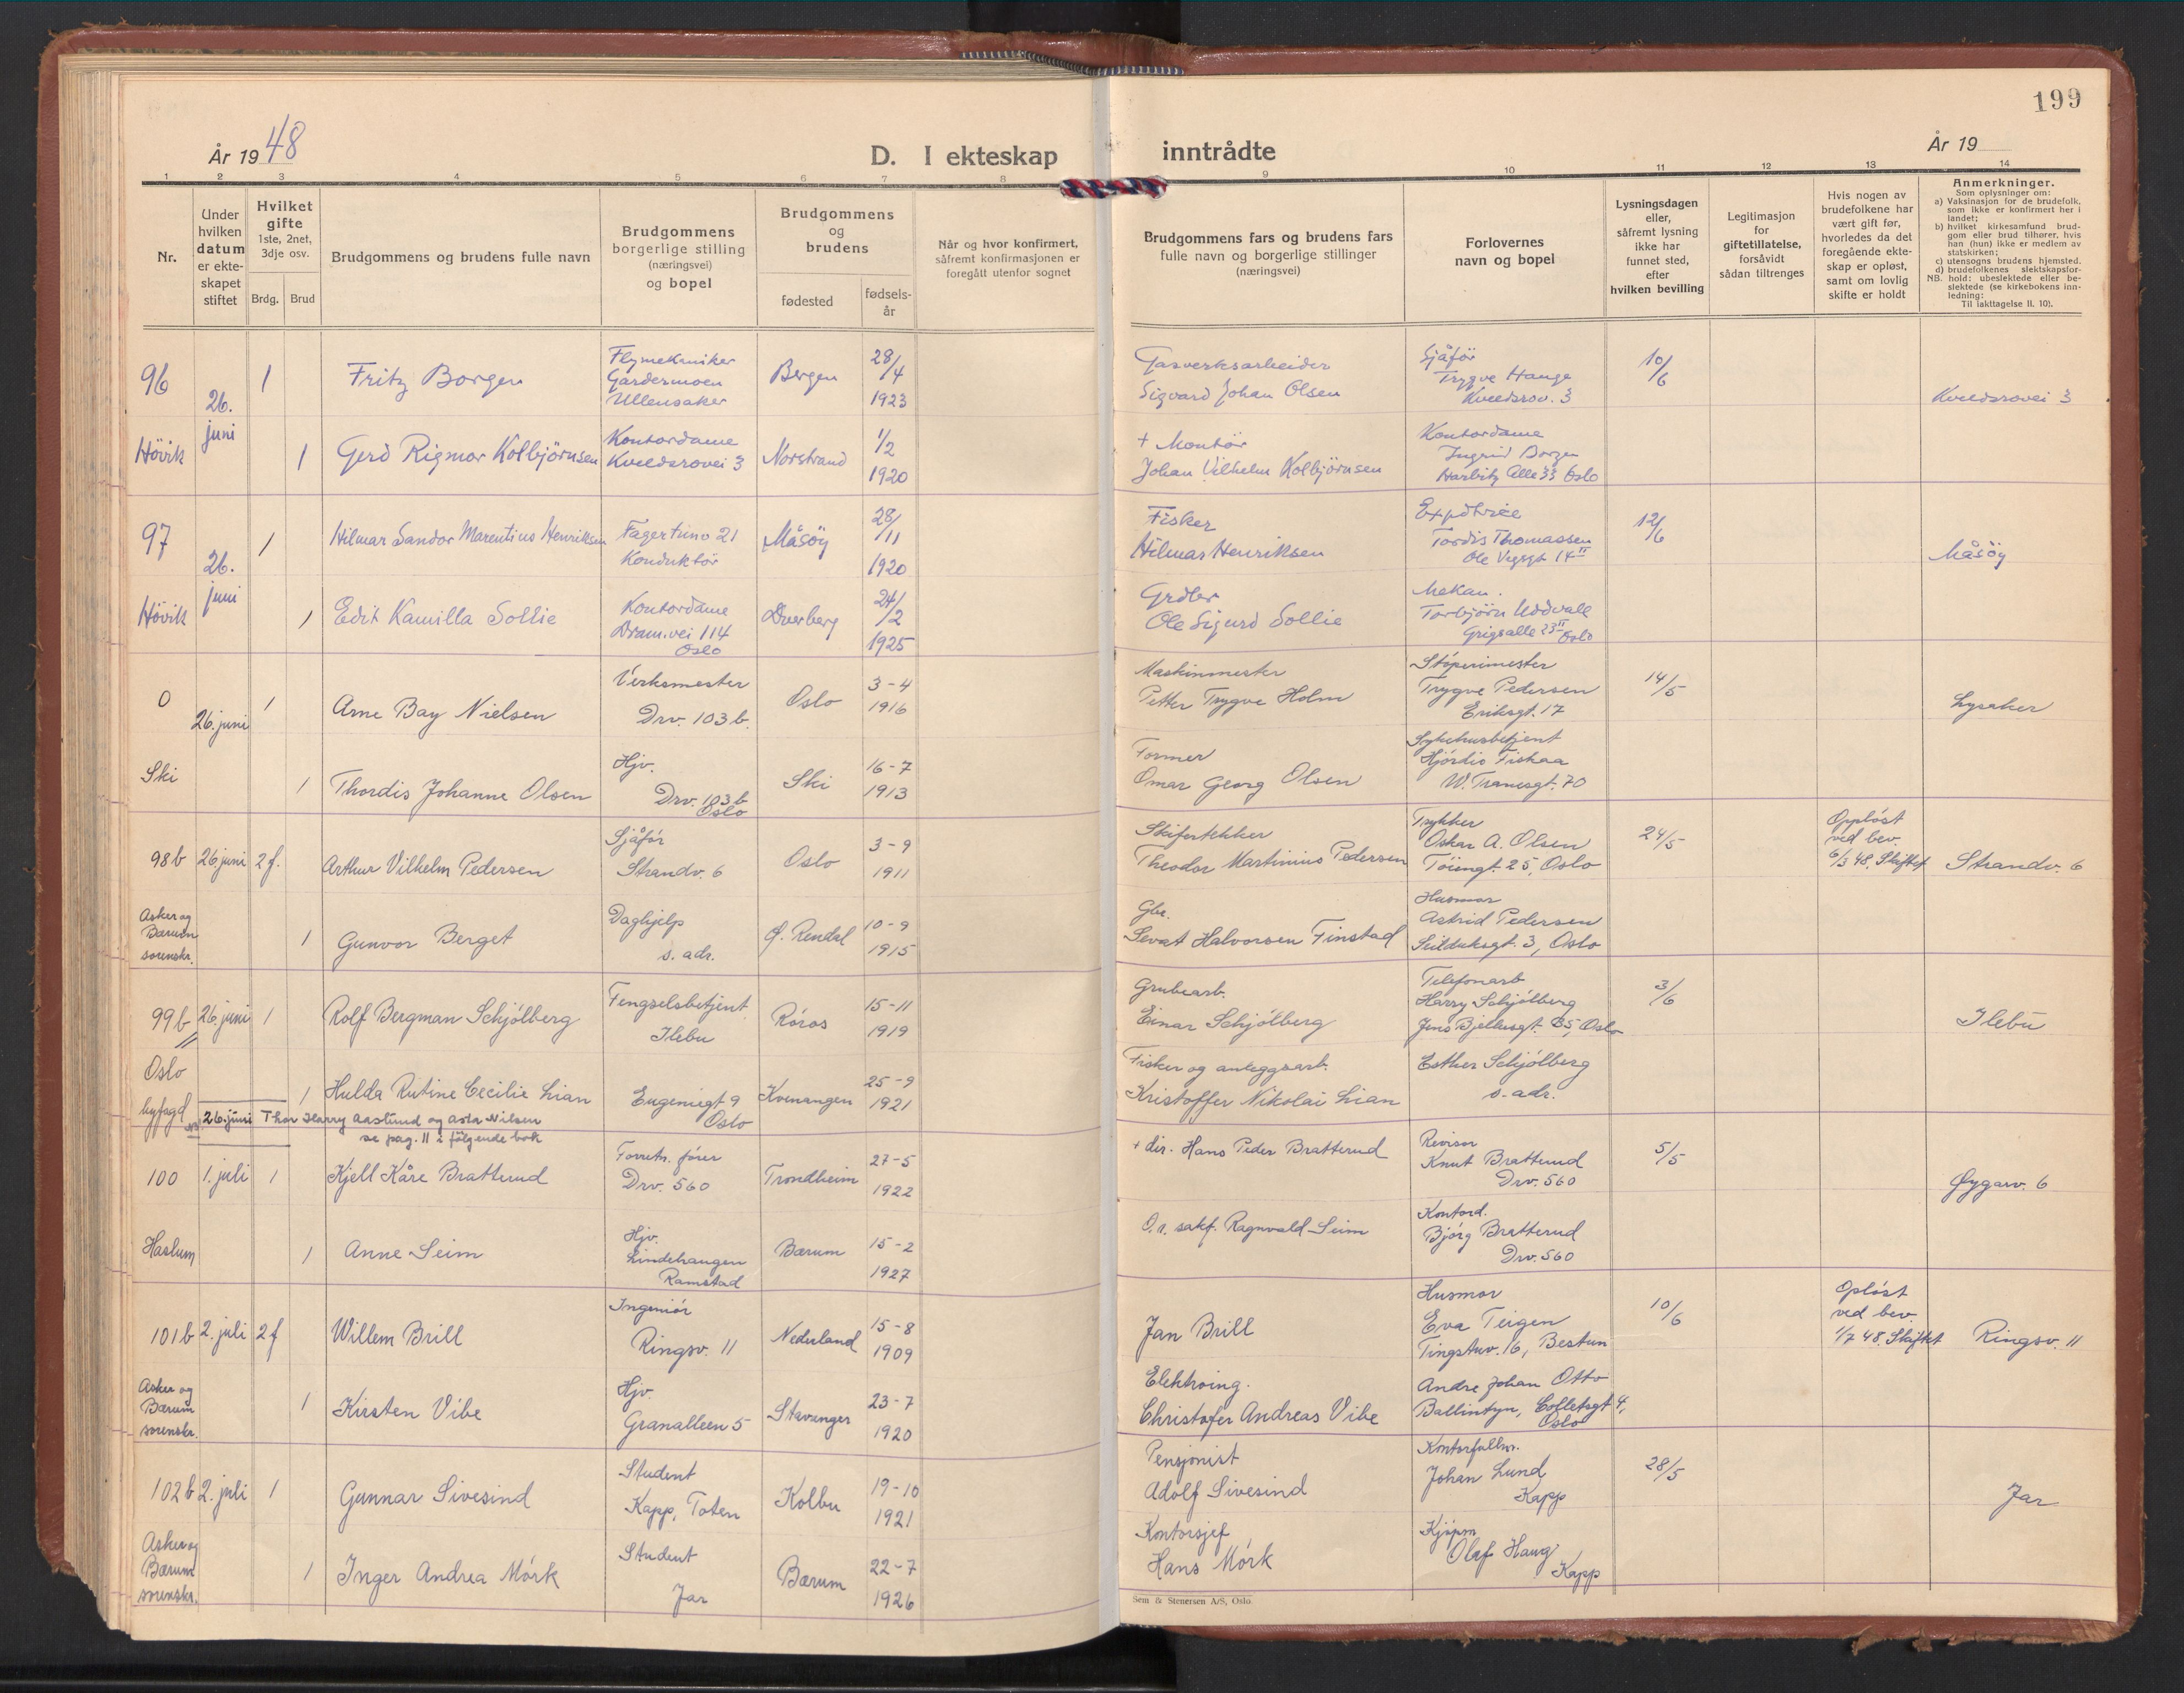 199
År 1948
D. I ekteskap inntrådte
År 19
1 2 3 4 5 6 7 8 9 10 11 12 13 14
Nr.
Under hvilken datum er ekteskapet stiftet
Hvilket gifte
1ste, 2net, 3dje osv.
Brdg. Brud
Brudgommens og brudens fulle navn
Brudgommens borgerlige stilling (næringsvei) og bopel
Brudgommens og brudens
fødested
fødselsår
Når og hvor konfirmert, såfremt konfirmasjonen er foregått utenfor sognet
Brudgommens fars og brudens fars fulle navn og borgerlige stillinger (næringsvei)
Forlovernes navn og bopel
Lysningsdagen eller, såfremt lysning ikke har funnet sted, efter hvilken bevilling
Legitimasjon for giftetillatelse, forsåvidt sådan tiltrenges
Hvis nogen av brudefolkene har vært gift før, hvorledes da det foregående ekteskap er opløst, samt om lovlig skifte er holdt
Anmerkninger.
Som oplysninger om:
a) Vaksinasjon for de brudefolk, som ikke er konfirmert her i landet;
b) hvilket kirkesamfund brudgom eller brud tilhører, hvis han (hun) ikke er medlem av statskirken;
c) utensogns brudens hjemsted.
d) brudefolkenes slektskapsforhold: ubeslektede eller beslektede (se kirkebokens innledning:
NB.
Til iakttagelse II. 10).
96 26. juni 1 Fritz Borgen Flymekaniker Gardermoen Ullensaker Bergen 28/4 1923 Gasverksarbeider Sigvard Johan Olsen Sjåfør Trygve Hauge Kveldsrov. 3 10/6 Kveldsrovei 3
Hövik 1 Gerd Rigmor Kolbjörnsen Kontordame Kveldsrovei 3 Norstrand 1/2 1920 + Montör Johan Vilhelm Kolbjörnsen Kontordame Ingrid Borgen Harbitz Alle 33 Oslo
97 26. juni 1 Hilmar Sandor Marentius Henriksen Fagertunv 21 Konduktör Måsöy 28/11 1920 Fisker Hilmar Henriksen Expdtrice Tordis Thomassen Ole Vigsgt 14 II 12/6 Måsöy
Hövik 1 Edit Kamilla Sollie Kontordame Dram.vei 114 Oslo Dverberg 24/2 1925 Grdbr Ole Sigurd Sollie Mekan. Torbjörn Uddvall Grigsalle 23 II Oslo
0 26. juni 1 Arne Bay Nielsen Verksmester Drv. 103 b. Oslo 3-4 1916 Maskinmester Petter Trygve Holm Støperimester Trygve Pedersen Eriksgt. 17 14/5 Lysaker
Ski 1 Thordis Johanne Olsen Hjv. Drv. 103 b Oslo Ski 16-7 1913 Former Omar Georg Olsen Sykehusbetjent Hjördis Fiskaa W. Tranesgt. 70
98 b 26 juni 2 f. Arthur Vilhelm Pedersen Sjåför Strandv. 6 Oslo 3-9 1911 Skifertekker Theodor Martinius Pedersen Trykker Oskar A. Olsen Töiengt. 25, Oslo 24/5 Opplöst ved bev. 6/3 48. Skiftet Strandv. 6
Asker og Bærum sorenskr. 1 Gunvor Berget Daghjelp s. adr. Ø. Rendal 10-9 1915 Gbr. Sevat Halvorsen Finstad Husmor Astrid Pedersen Seilduksgt. 3, Oslo
99 b 26. juni 1 Rolf Bergman Schjölberg Fengselsbetjent Ilebu Röros 15-11 1919 Grubearb. Einar Schjölberg Telefonarb Harry Schjölberg Jens Bjelkesgt. 65, Oslo 3/6 Ilebu
Oslo byfogd 1 Hulda Rutine Cecilie Lian Eugeniegt 9 Oslo Kvenangen 25-9 1921 Fisker og anleggsarb. Kristoffer Nikolai Lian Esther Schjölberg s. adr.
26. juni Thor Harry Aaslund og Asta Nilsen
se pag. 11 i følgende bok
100 1. juli 1 Kjell Kåre Bratterud Forretn. förer Drv. 560 Trondheim 27-5 1922 + dir. Hans Peder Bratterud Revisor Knut Bratterud Drv. 560 5/5 Øygarv. 6
Haslum 1 Anne Seim Hjv. Lindehaugen Ramstad Bærum 15-2 1927 O.r. sakf. Ragnvald Seim Kontord. Bjørg Bratterud Drv. 560
101 b 2. juli 2 f Willem Brill Ingeniør Ringsv. 11 Nederland 15-8 1909 Jan Brill Husmor Eva Teigen Tingstuv. 16, Bestun 10/6 Oplöst ved bev. 1/7 48. Skiftet Ringsv. 11
Asker og Bærum sorenskr. 1 Kirsten Vibe Hjv. Granalleen 5 Stavanger 23-7 1920 Elektroing. Christofer Andreas Vibe Andre Johan Otto Ballintyn, Colletsgt 4, Oslo
102 b 2. juli 1 Gunnar Sivesind Student Kapp, Toten Kolbu 19-10 1921 Pensjonist Adolf Sivesind Kontorfullm. Johan Lund Kapp 28/5 Jar
Asker og Bærum sorenskr. 1 Inger Andrea Mörk Student Jar Bærum 22-7 1926 Kontorsjef Hans Mörk Kjøpm Olaf Haug Kapp
Sem & Stenersen A/S, Oslo.